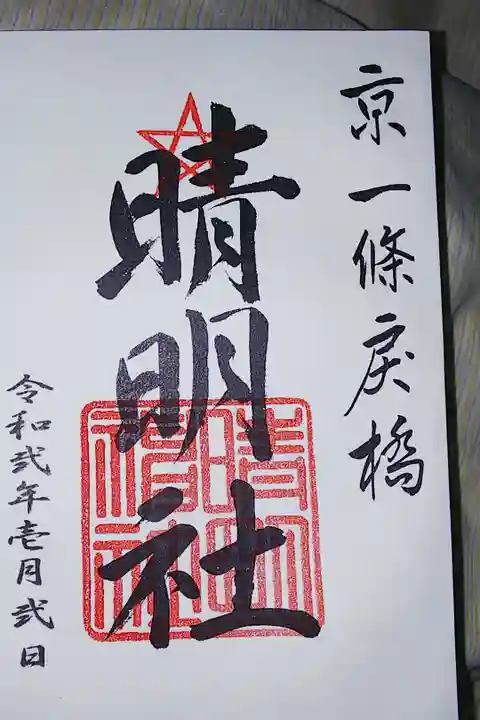 京一條戻橋
晴明社
令和弐年壱月弐日